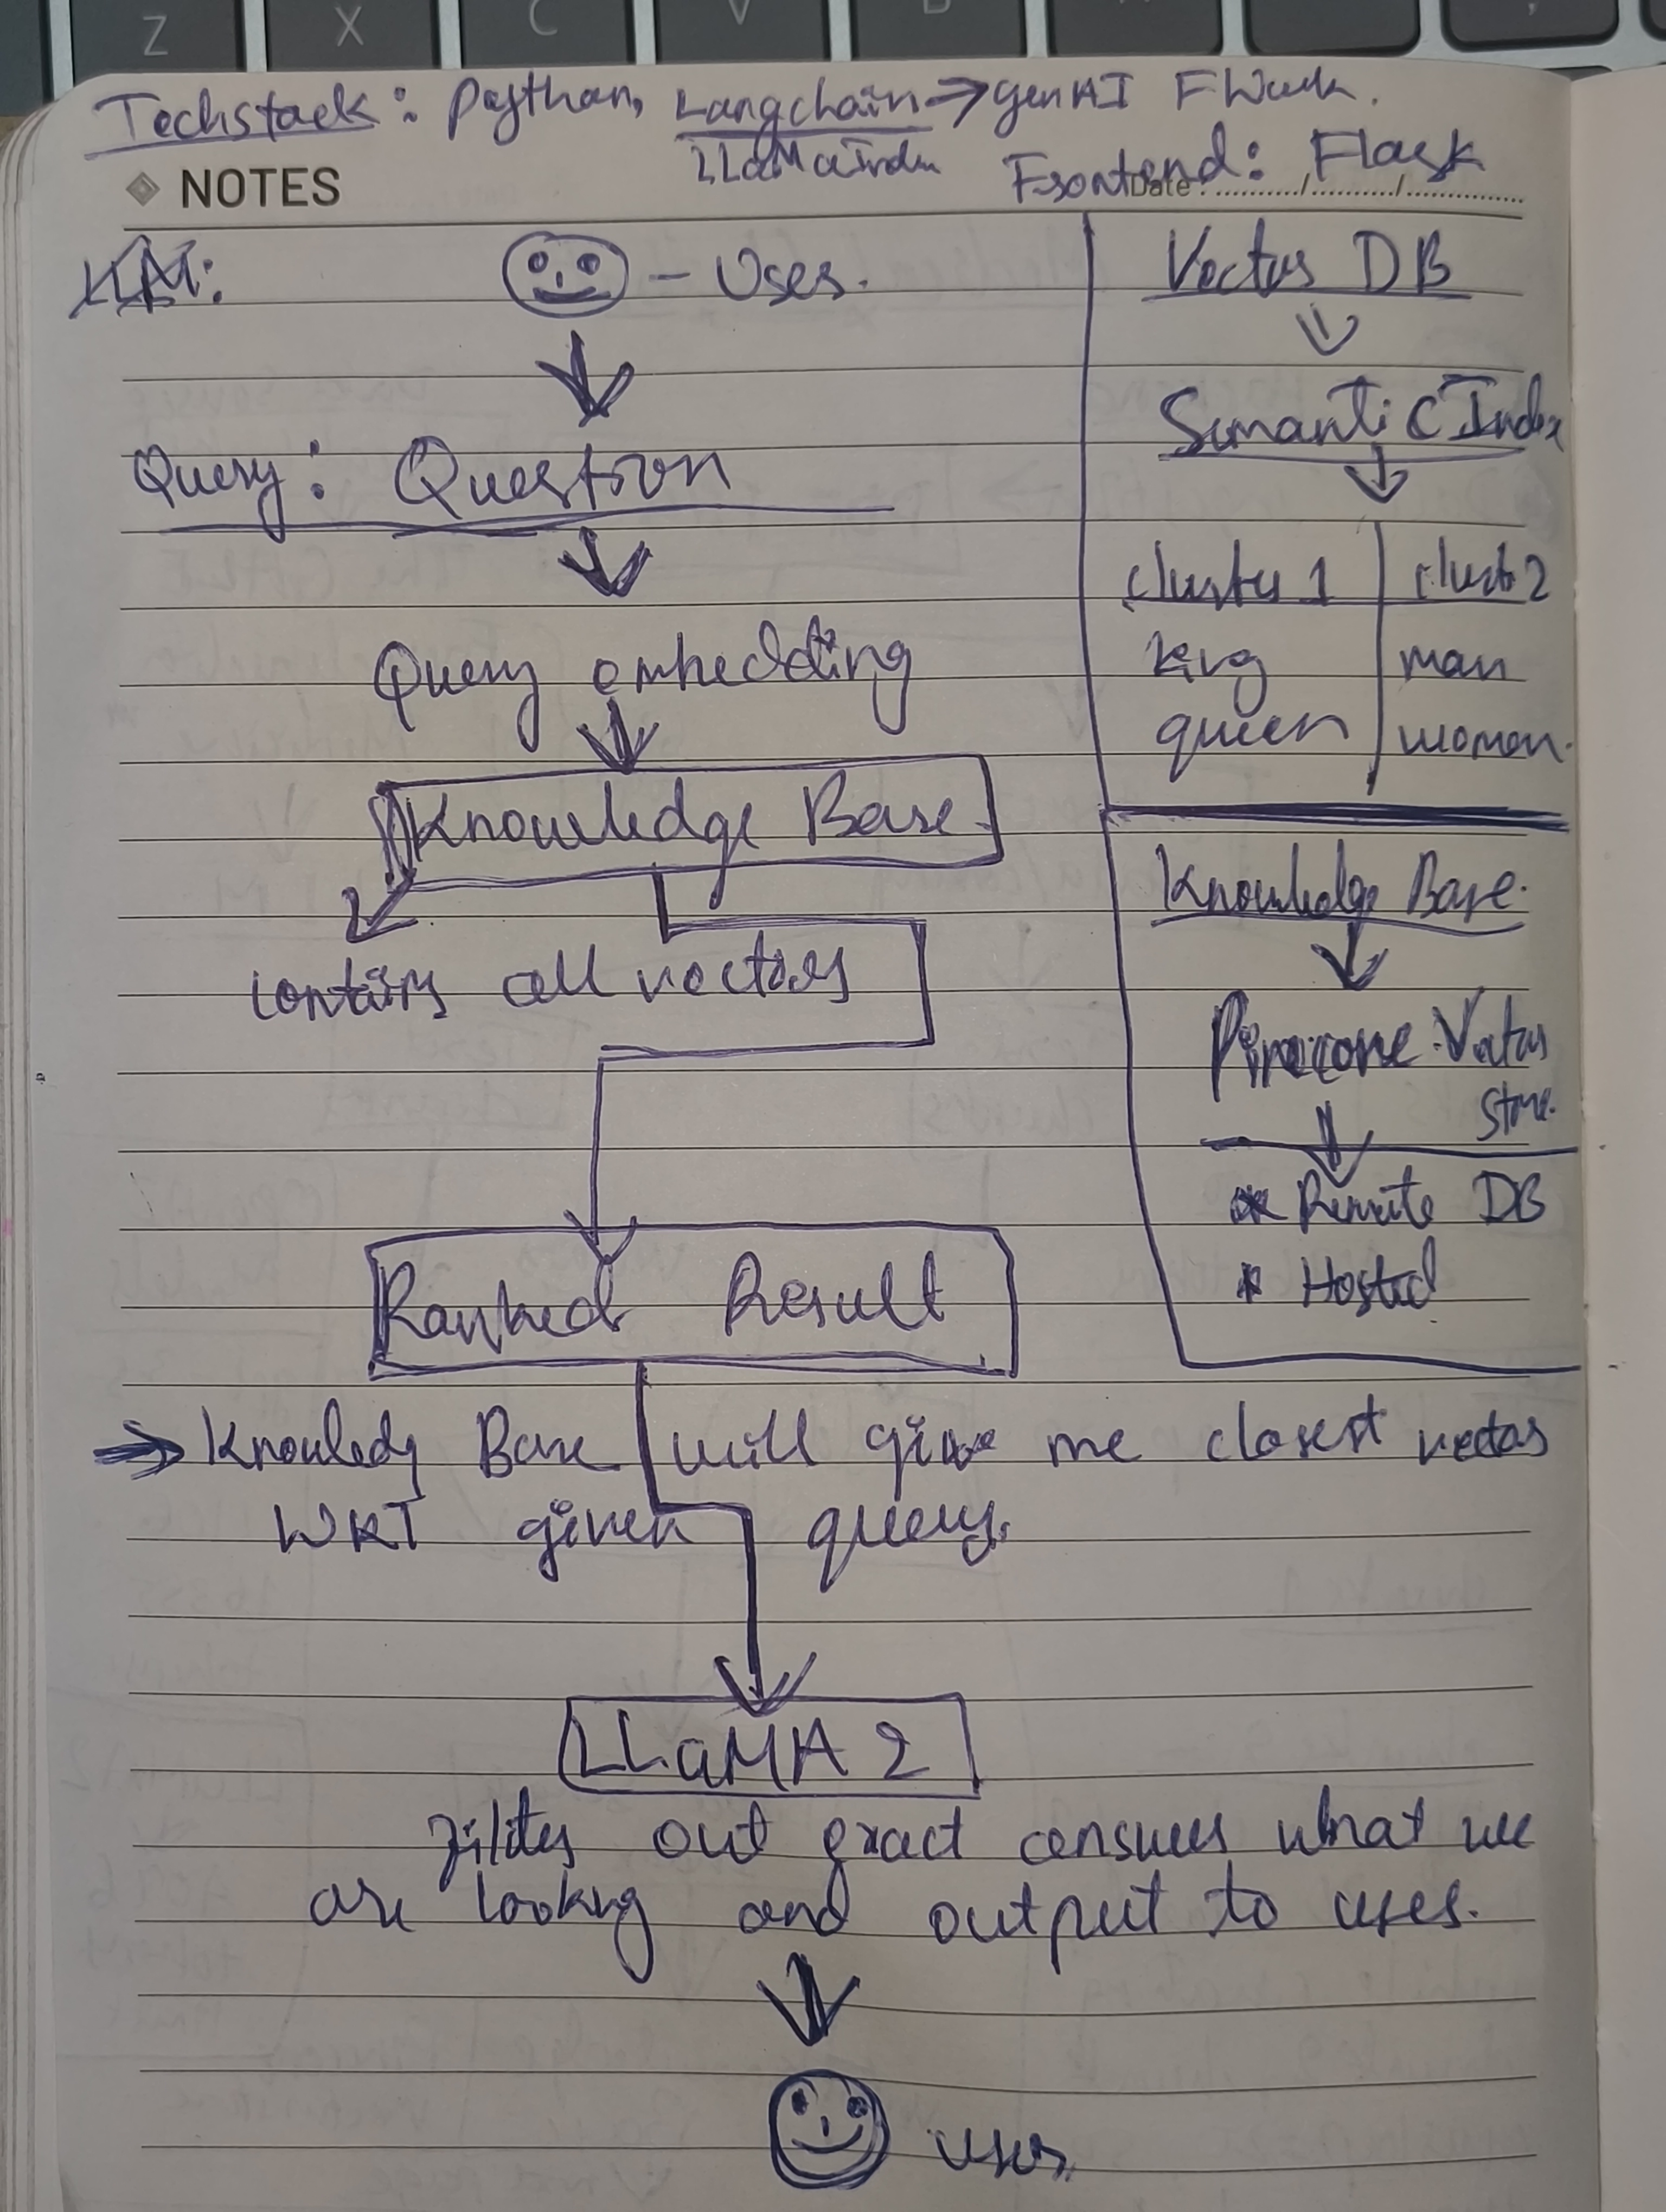 Z X C V B
Techstack: Python, Langchain → genAI FWork.
LLaMaIndex
Frontend: Flask
NOTES
Date :........../........../..........
User.
Query: Question
Query embedding
Knowledge Base.
contains all vectors
Ranked Result
⇒ Knowledg Base will give me closest vectors
WRT given query.
LLaMA 2
filters out exact answers what we
are looking and output to user.
user
Vector DB
Semantic Index
cluster 1 clust 2
king man
queen woman.
Knowledge Base.
Pinecone Vector
Store.
* Remote DB
* Hosted